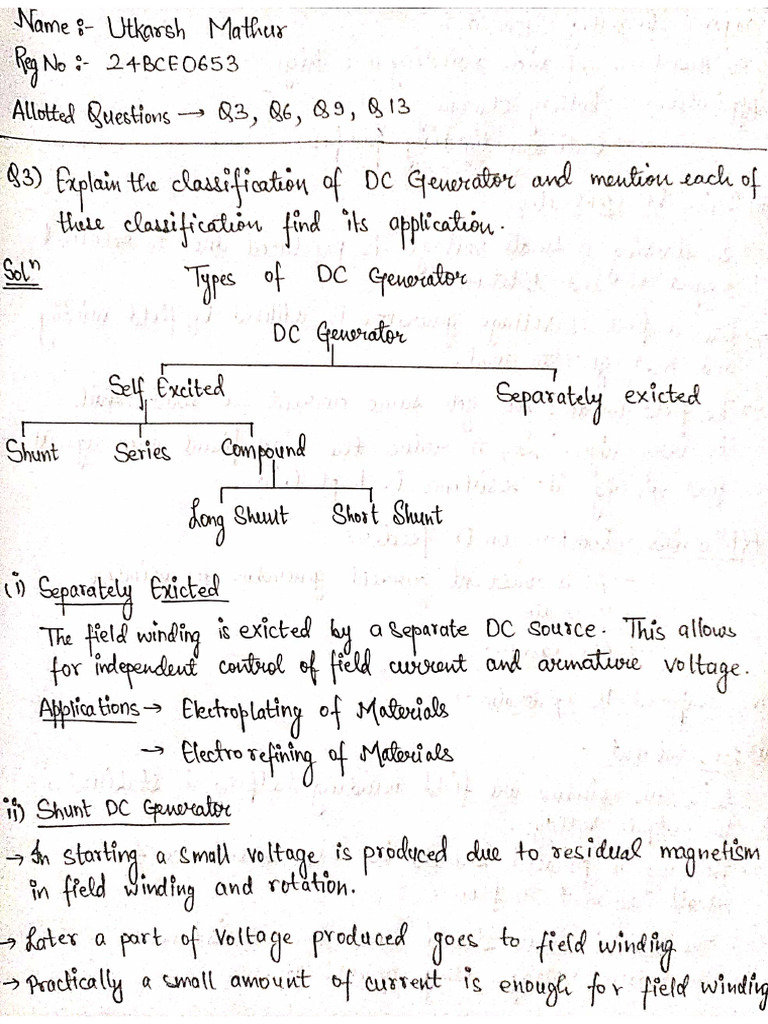 Name :- Utkarsh Mathur
Reg No :- 24BCE0653
Allotted Questions → Q3, Q6, Q9, Q13
Q3) Explain the classification of DC Generator and mention each of
these classification find its application.
Solⁿ Types of DC Generator
DC Generator
Self Excited Separately exicted
Shunt Series Compound
Long Shunt Short Shunt
(i) Separately Exicted
The field winding is exicted by a separate DC source. This allows
for independent control of field current and armature voltage.
Applications → Electroplating of Materials
→ Electrorefining of Materials
ii) Shunt DC Generator
→ In starting a small voltage is produced due to residual magnetism
in field winding and rotation.
→ Later a part of voltage produced goes to field winding
→ Practically a small amount of current is enough for field winding